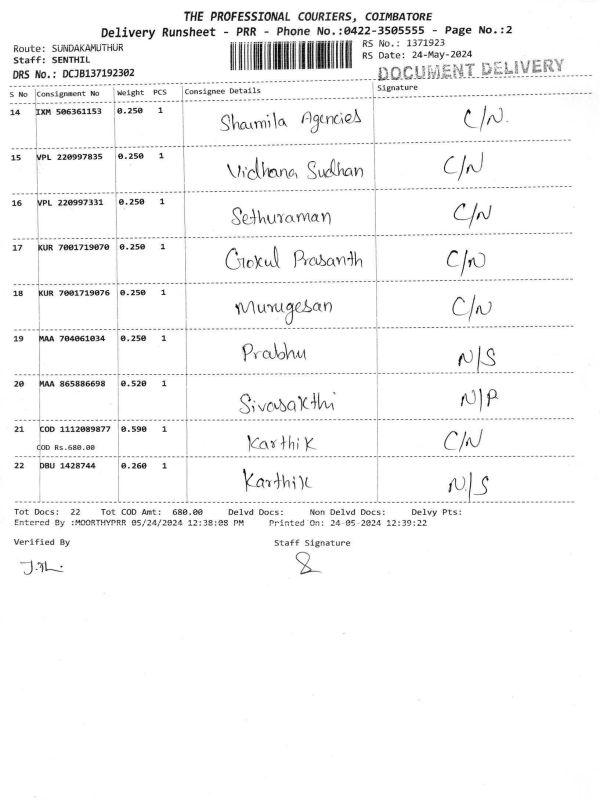 THE PROFESSIONAL COURIERS, COIMBATORE
Delivery Runsheet - PRR - Phone No.:0422-3505555 - Page No.:2
Route: SUNDAKAMUTHUR
RS No.: 1371923
Staff: SENTHIL
RS Date: 24-May-2024
DRS No.: DCJB137192302
DOCUMENT DELIVERY
S No Consignment No Weight PCS Consignee Details Signature
14 IXM 506361153 0.250 1 Sharmila Agencies C/N.
15 VPL 220997835 0.250 1 Vidhana Sudhan C/N
16 VPL 220997331 0.250 1 Sethuraman C/N
17 KUR 7001719070 0.250 1 Gokul Prasanth C/N
18 KUR 7001719076 0.250 1 Murugesan C/N
19 MAA 704061034 0.250 1 Prabhu N/S
20 MAA 865886698 0.520 1 Sivasakthi N/P
21 COD 1112089877 0.590 1 Karthik C/N
COD Rs.680.00
22 DBU 1428744 0.260 1 Karthik N/S
Tot Docs: 22 Tot COD Amt: 680.00 Delvd Docs: Non Delvd Docs: Delvy Pts:
Entered By :MOORTHYPRR 05/24/2024 12:38:08 PM Printed On: 24-05-2024 12:39:22
Verified By Staff Signature